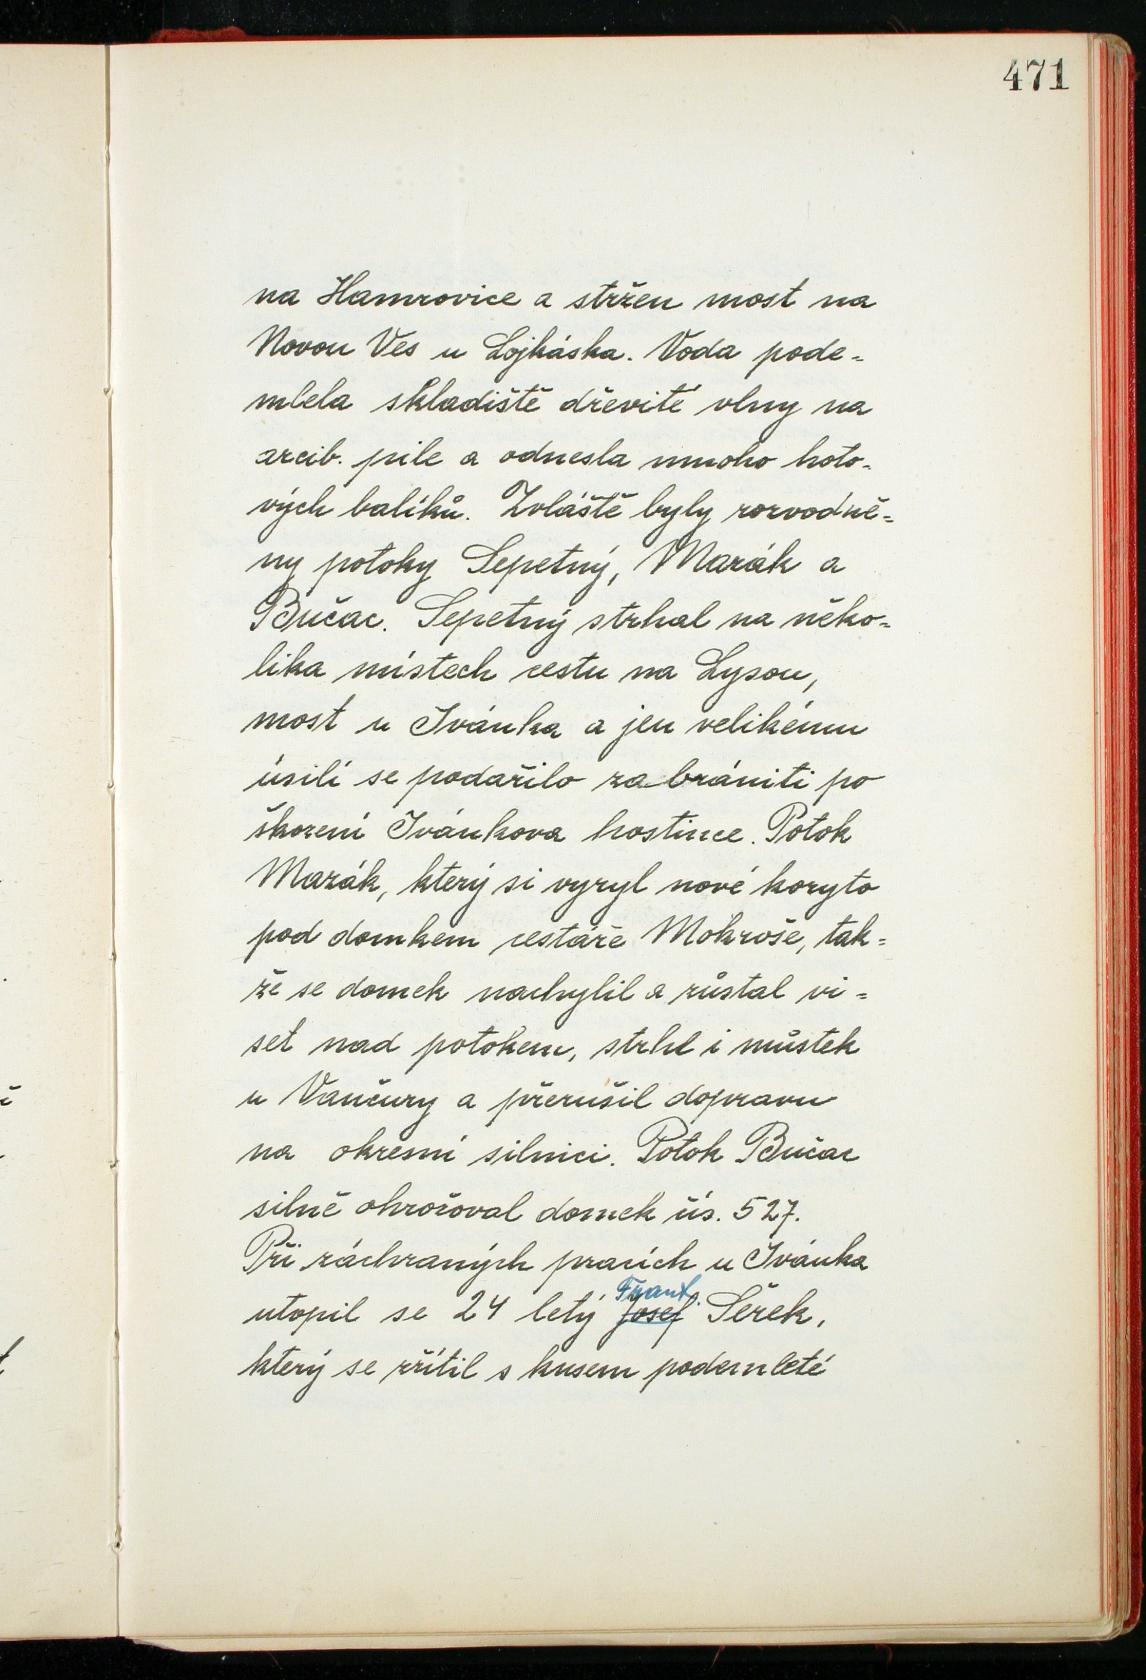 471
na Hamrovice a stržen most na
Novou Ves u Lojkáska. Voda pode=
mlela skladiště dřevité vlny na
arcib. pile a odnesla mnoho hoto-
vých balíků. Zvláště byly rozvodně=
ny potoky Sepetný, Mazák a
Bučac. Sepetný strhal na něko=
lika místech cestu na Lysou,
most u Ivánka a jen velikému
úsilí se podařilo zabrániti po
škození Ivánkova hostince. Potok
Mazák, který si vyryl nové koryto
pod domkem cestáře Mokroše, tak=
že se domek nachylil a zůstal vi=
set nad potokem, strhl i můstek
u Vančury a přerušil dopravu
na okresní silnici. Potok Bučac
silně ohrožoval domek čís. 527.
Při záchraných pracích u Ivánka
Frant.
utopil se 24 letý Josef Seřek,
který se zřítil s kusem podemleté